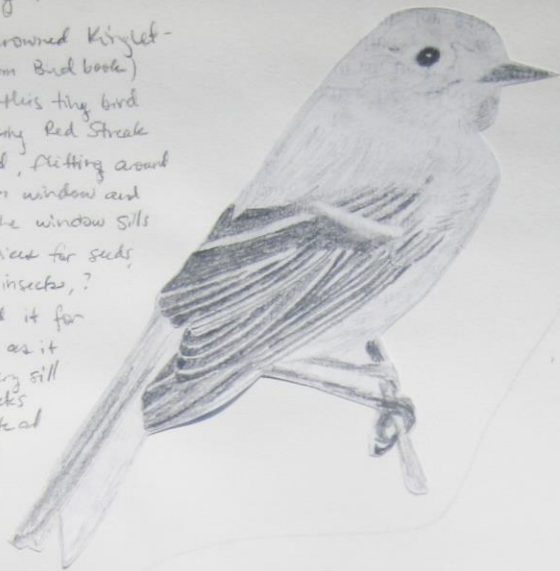 rowned Kinglet-
om Bird book)
this tiny bird
Red Streak
d, flitting around
window and
e window sills
for seeds,
insects, ?
d it for
as it
sill